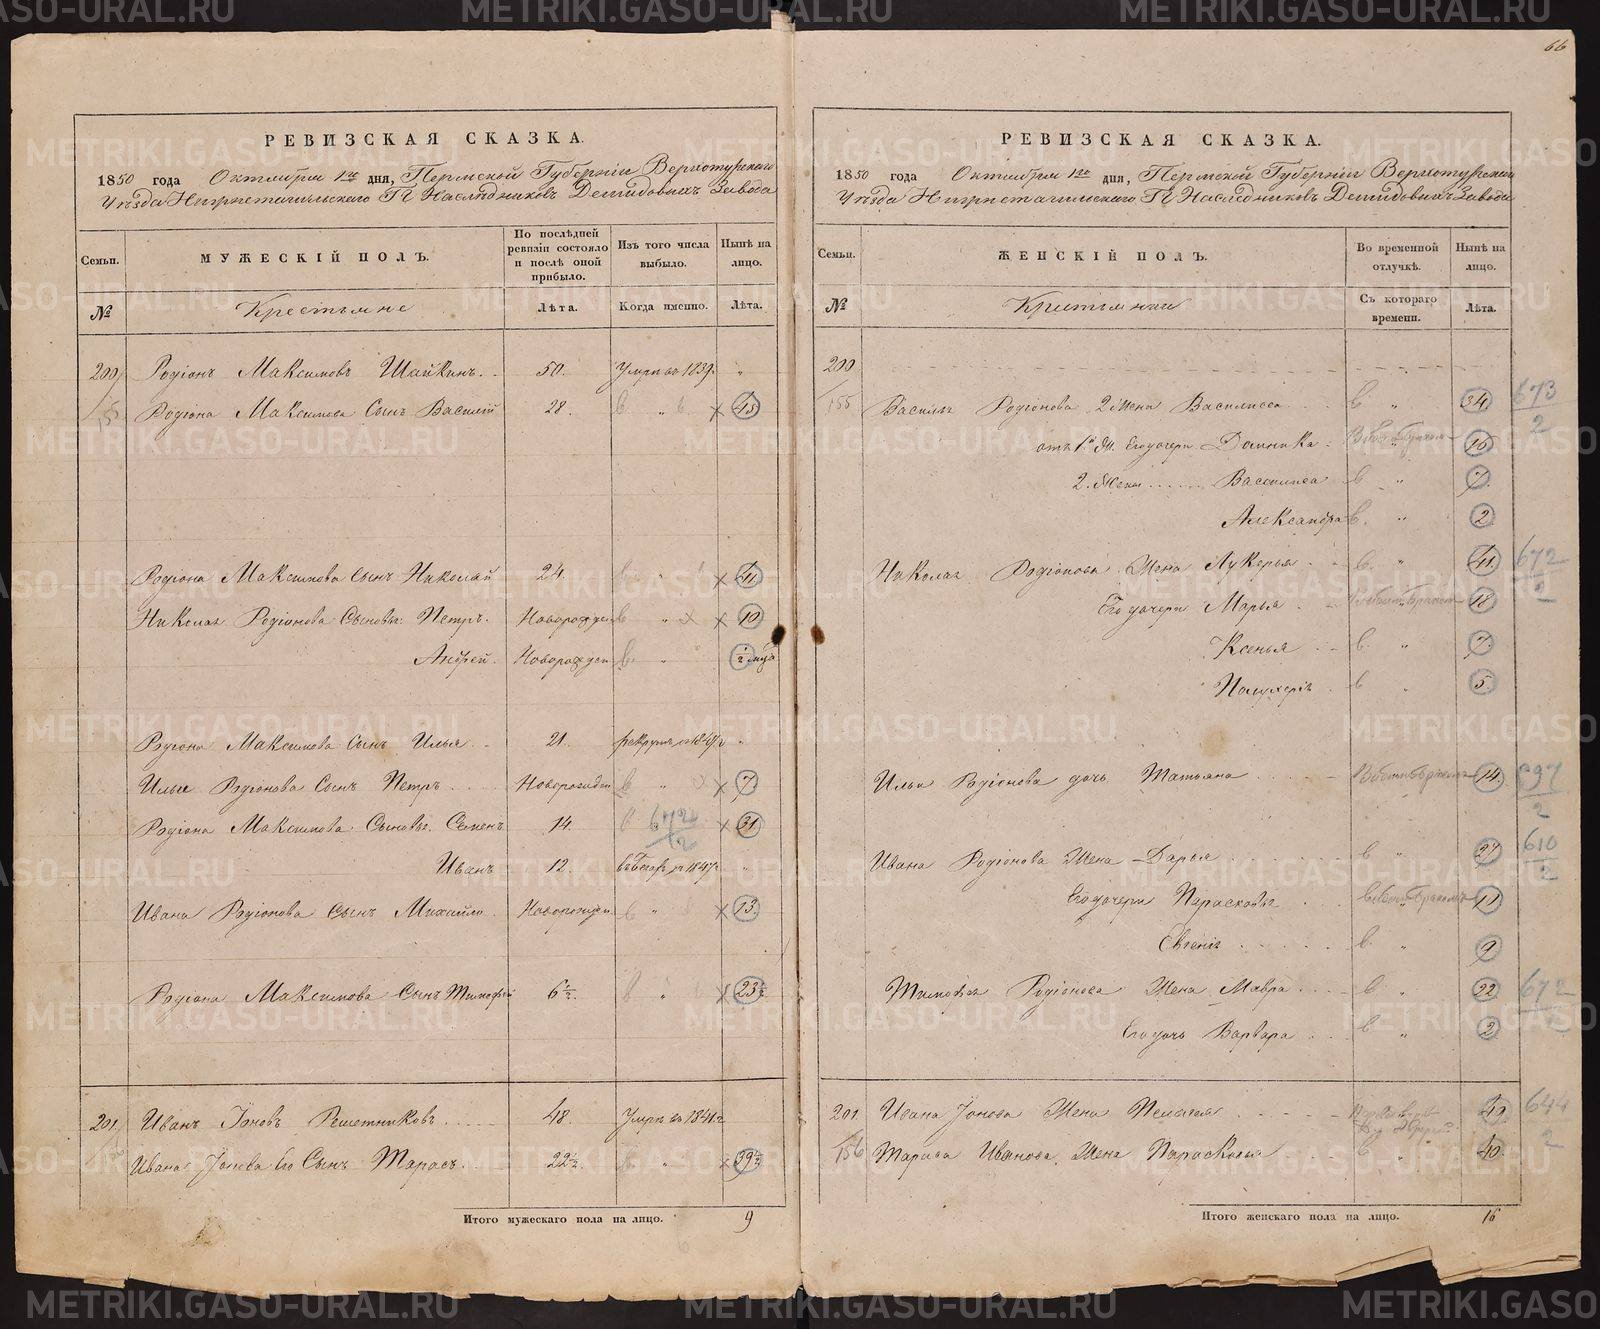 66
РЕВИЗСКАЯ СКАЗКА.
1850 года Октября 1го дня, Пермской Губерніи Верхотурскаго
Уѣзда Нижнетагильскаго Гг Наслѣдниковъ Демидовыхъ Завода
Семьи. МУЖЕСКІЙ ПОЛЪ. По послѣдней ревизіи состояло и послѣ оной прибыло. Изъ того числа выбыло. Нынѣ на лицо.
№ Крестьяне Лѣта. Когда именно. Лѣта.
200 Родіонъ Максимовъ Шайкинъ. 50. Умри въ 1839. "
155 Родіона Максимова Сынъ Василій 28. " 45
Родіона Максимова Сынъ Николай 24. " 41
Николая Родіонова Сыновья: Петръ. Новорожден " 10
Андрей. Новорожден " ½ мца
Родіона Максимова Сынъ Илья 21. рекрутъ "
Ильи Родіонова Сынъ Петръ Новорожден " 7.
Родіона Максимова Сыновья: Семенъ 14. 672/2 31
Иванъ 12. "
Ивана Родіонова Сынъ Михайло Новорожден " 13.
Родіона Максимова Сынъ Тимофей 6½. " 23½
201 Иванъ Іоновъ Решетниковъ 48. Умри въ 1841г
Ивана Іонова Его Сынъ Тарасъ. 22½. " 39½
Итого мужескаго пола на лицо. 9
РЕВИЗСКАЯ СКАЗКА.
1850 года Октября 1го дня, Пермской Губерніи Верхотурскаго
Уѣзда Нижнетагильскаго Гг Наслѣдниковъ Демидовыхъ Завода
Семьи. ЖЕНСКІЙ ПОЛЪ. Во временной отлучкѣ. Нынѣ на лицо.
№ Крестьянки Съ котораго времени. Лѣта.
200
155 Василья Родіонова 2 Жена Василиса " 34 673/2
отъ 1й Ж. Его дочери Домника 16
2. Жены Василиса " 7.
Александра " 2
Николая Родіонова Жена Лукерья " 41 672/2
Его дочери Марья 18
Ксенья " 7.
Полухерія " 5.
Ильи Родіонова дочь Татьяна 14. 697/2
Ивана Родіонова Жена Дарья " 37 610/2
Его дочери Парасковья 17
Евгенія " 9
Тимофея Родіонова Жена Мавра " 22 672/2
Его дочь Варвара " 2
201 Ивана Іонова Жена Пелагея 49 644/2
156 Тараса Иванова Жена Парасковья " 40
Итого женскаго пола на лицо. 16
METRIKI.GASO-URAL.RU